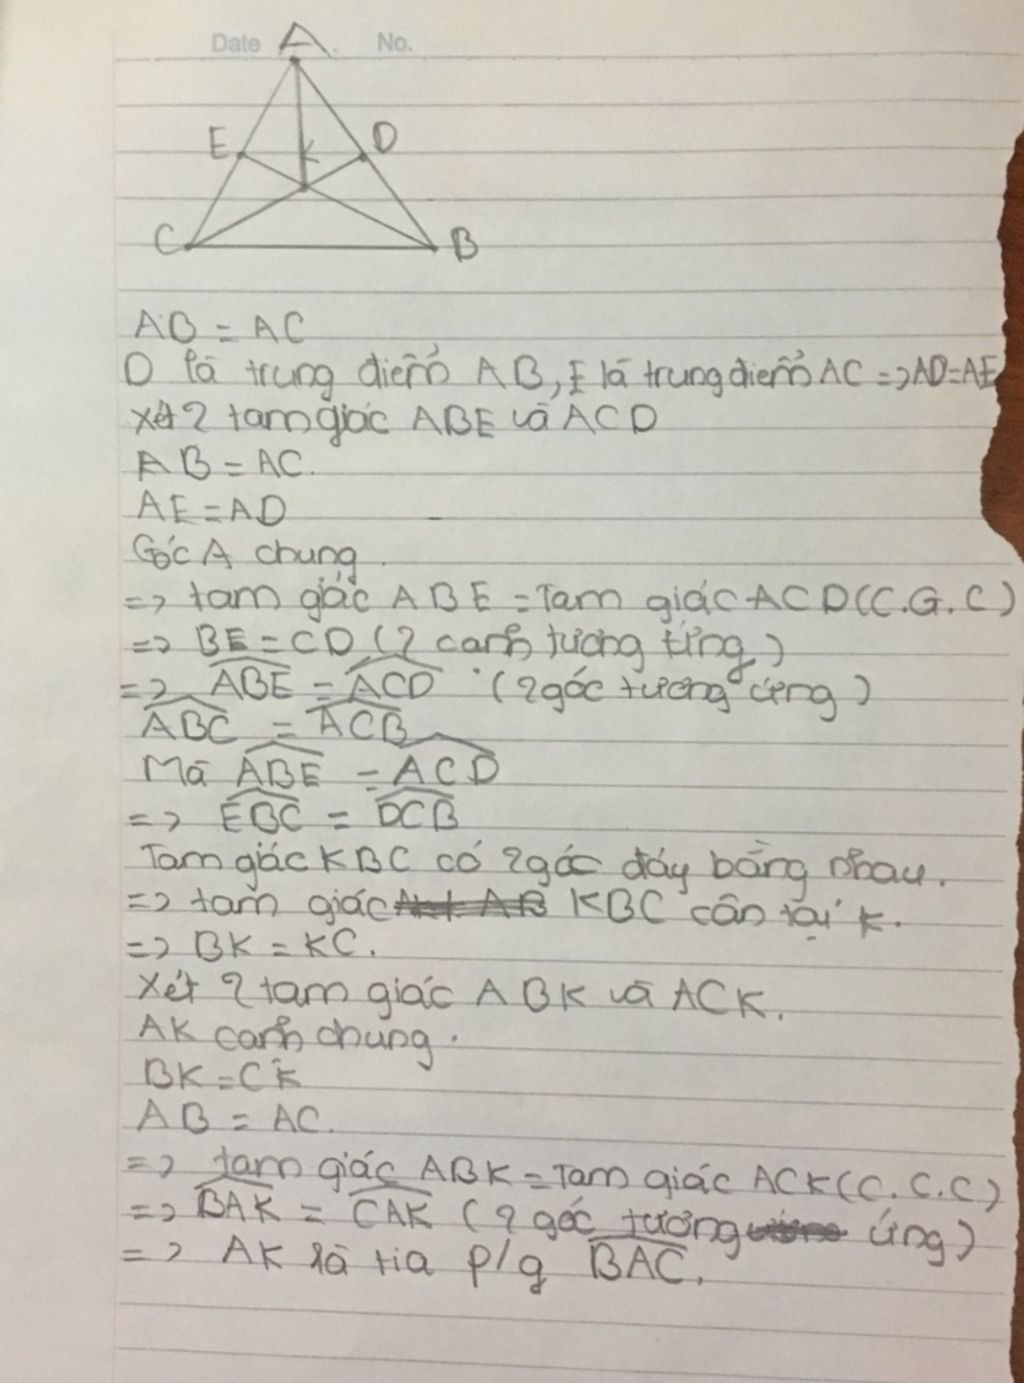 Date A. No.
E D
K
C B
AB = AC
D là trung điểm AB, E là trung điểm AC => AD=AE
Xét 2 tam giác ABE và ACD
AB = AC.
AE = AD
Góc A chung.
=> tam giác ABE = Tam giác ACD (C.G.C)
=> BE = CD (2 cạnh tương ứng)
=> ABE = ACD (2 góc tương ứng)
ABC = ACB
Mà ABE = ACD
=> EBC = DCB
Tam giác KBC có 2 góc đáy bằng nhau.
=> tam giác KBC cân tại K.
=> BK = KC.
Xét 2 tam giác ABK và ACK.
AK cạnh chung.
BK = CK
AB = AC.
=> tam giác ABK = Tam giác ACK (C.C.C)
=> BAK = CAK (2 góc tương ứng)
=> AK là tia p/g BAC.